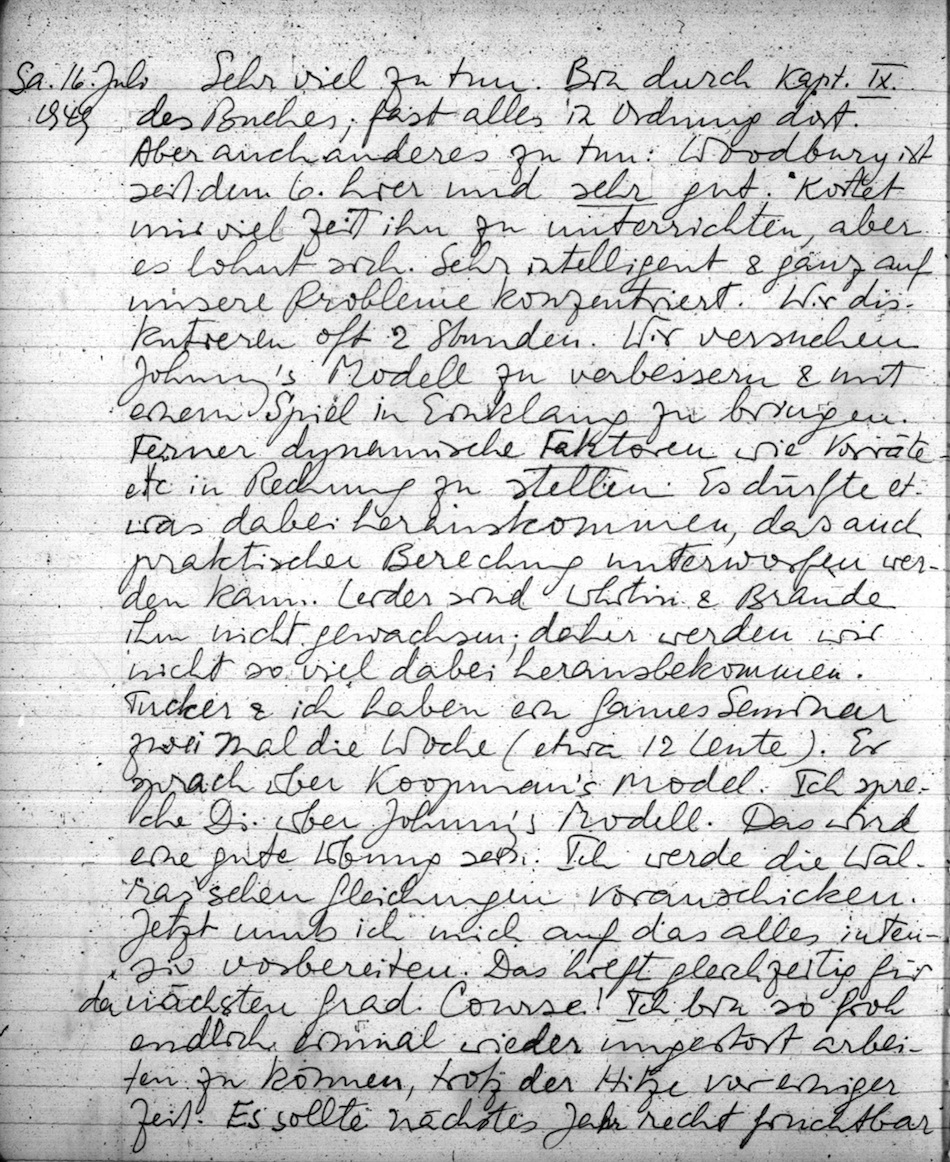 Sa. 16. Juli Sehr viel zu tun. Bin durch Kapt. IX.
1949 des Buches; fast alles in Ordnung dort.
Aber auch anderes zu tun: Woodbury ist
seit dem 6. hier und sehr gut. Kostet
mir viel Zeit ihn zu unterrichten, aber
es lohnt sich. Sehr intelligent & ganz auf
unsere Probleme konzentriert. Wir dis-
kutieren oft 2 Stunden. Wir versuchen
Johnny's Modell zu verbessern & mit
einem Spiel in Einklang zu bringen.
Ferner dynamische Faktoren wie Vorräte
etc in Rechnung zu stellen. Es dürfte et-
was dabei herauskommen, das auch
praktischer Berechnung unterworfen wer-
den kann. Leider sind Whitin & Brande
ihm nicht gewachsen; daher werden wir
nicht so viel dabei herausbekommen.
Tucker & ich haben ein Games Seminar
zwei Mal die Woche (etwa 12 Leute). Er
sprach über Koopman's Model. Ich spre-
che Di. über Johnny's Modell. Das wird
eine gute Übung sein. Ich werde die Wal-
ras'schen Gleichungen voranschicken.
Jetzt muß ich mich auf das alles inten-
siv vorbereiten. Das hilft gleichzeitig für
den nächsten Grad. Course! Ich bin so froh
endlich einmal wieder ungestört arbei-
ten zu können, trotz der Hitze vor einiger
Zeit. Es sollte nächstes Jahr recht fruchtbar